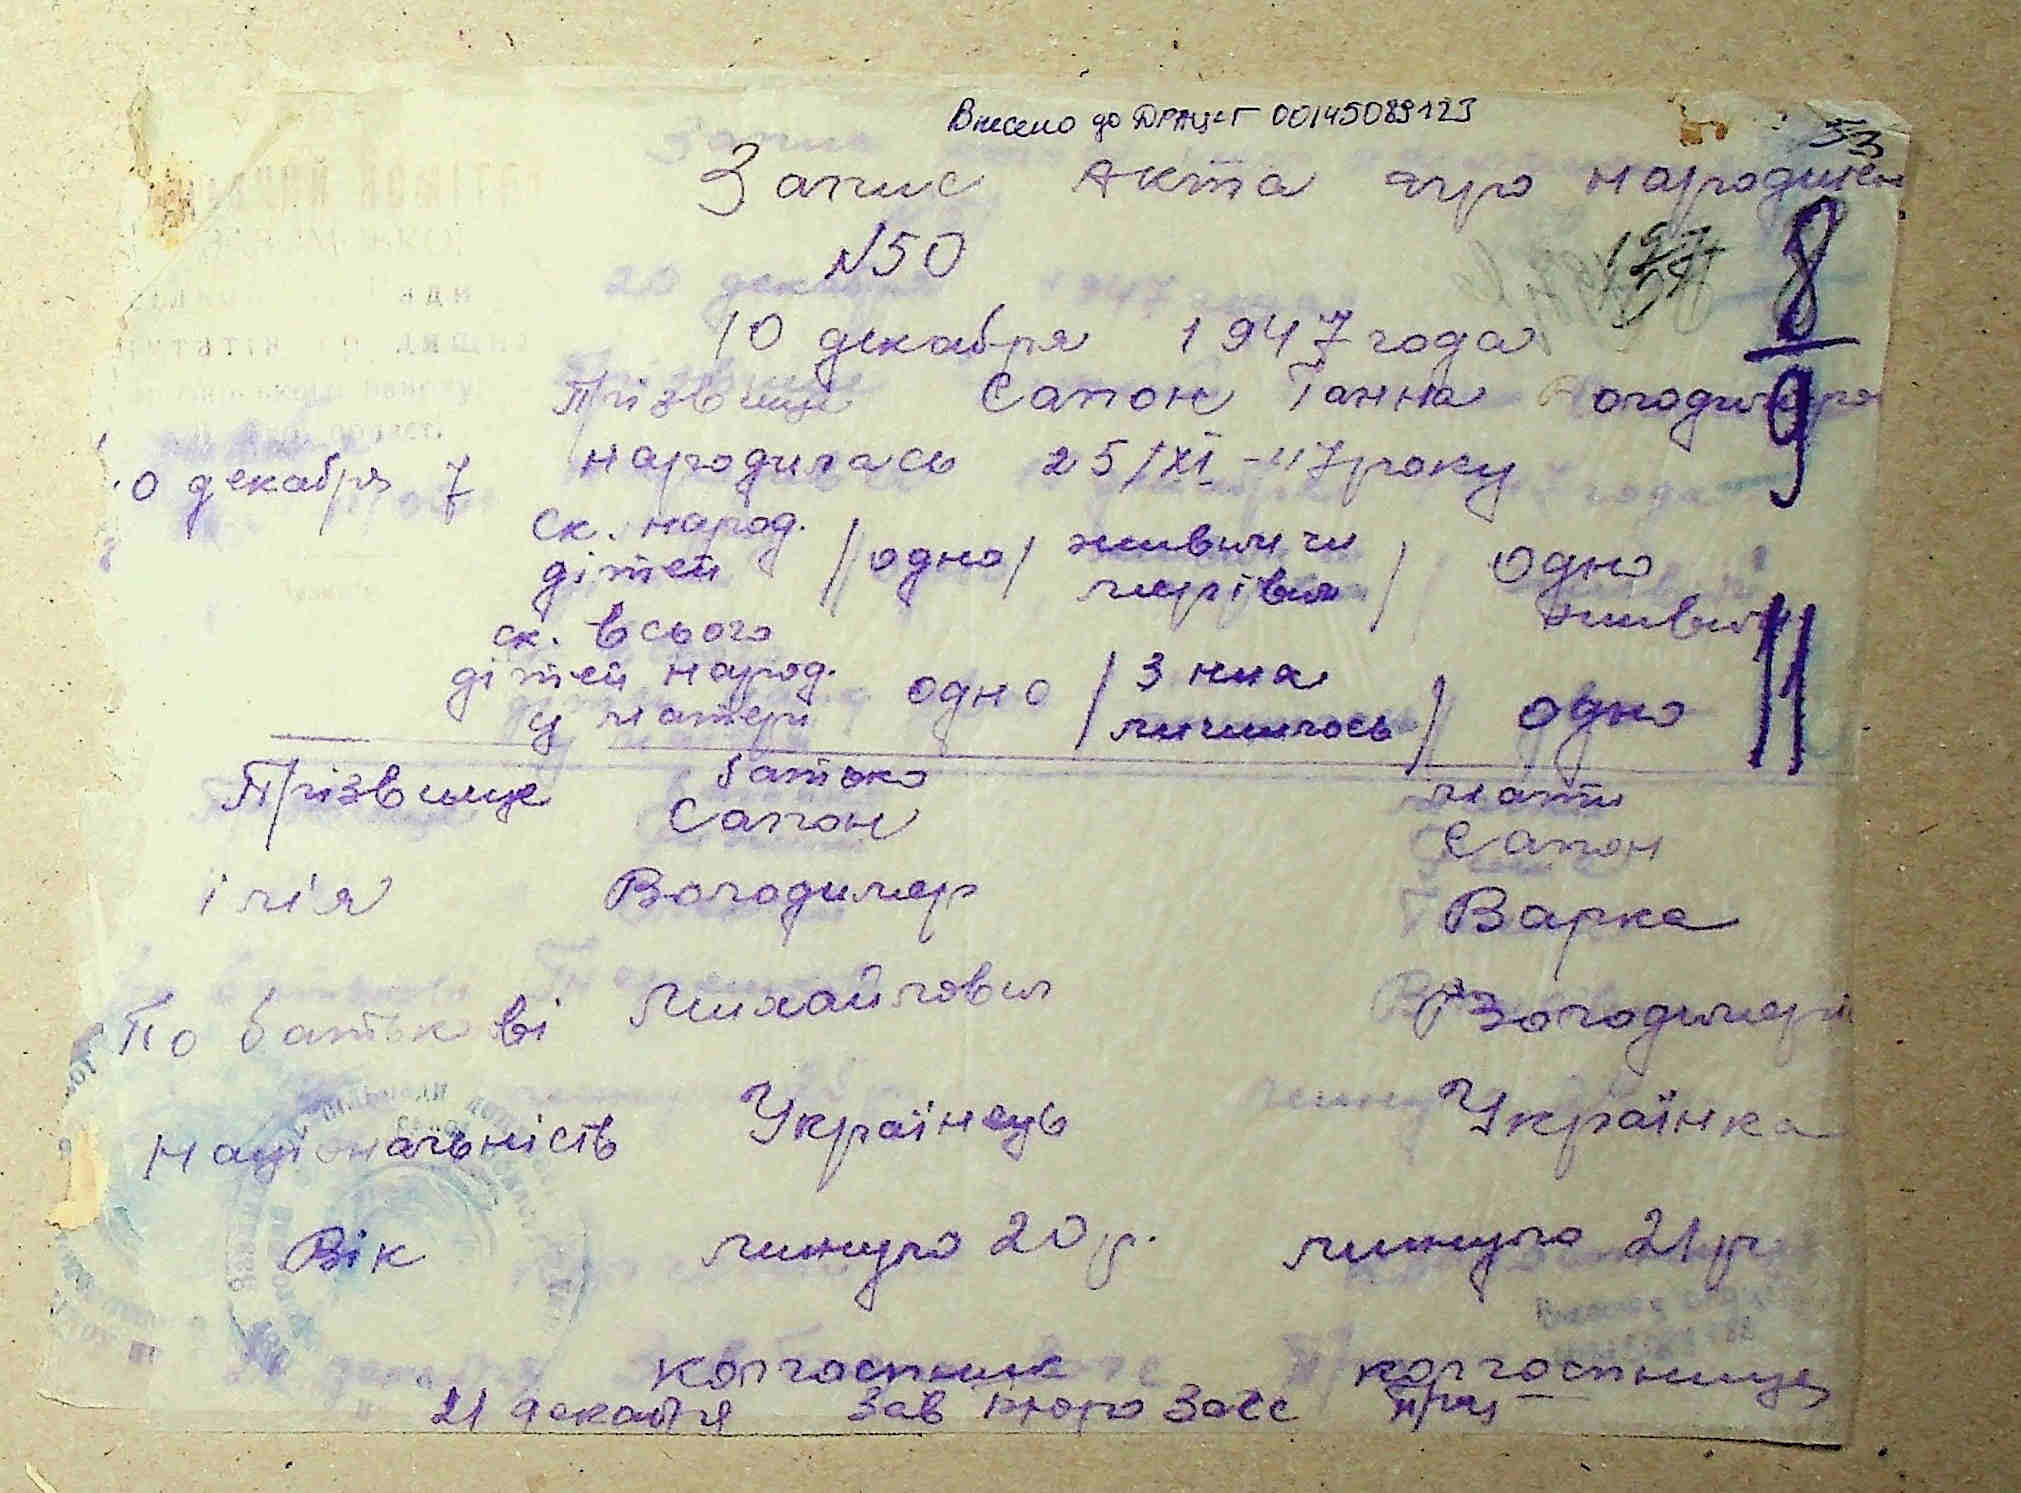 Внесено до ДРАЦсГ 00145089123
53
Запис Акта про народжен
N50
8
9
10 декабря 1947 года
Прізвище Сапон Ганна Володимиро
народилась 25/XI-47 року
0 декабря 7
ск. народ. дітей / одно / живим чи мертвим / одно живим
ск. всього дітей народ. у матери одно / з них лишилось / одно
батько мати
Прізвище Сапон Сапон
імія Володимер Варка
По батькові Михайлович Володимерів
Національність Українець Українка
Вік минуло 20 р. минуло 21 р.
колгоспник колгоспниця
21 декабря Зав бюро Загс